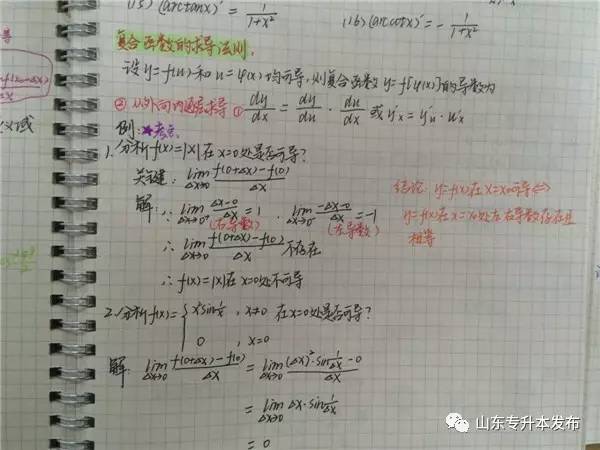 (15) (arctanx)' = 1/(1+x²)
(16) (arccotx)' = -1/(1+x²)
复合函数的求导法则.
设y=f(u)和u=φ(x)均可导,则复合函数y=f[φ(x)]的导数为
② 从外向内逐层求导 ① dy/dx = dy/du · du/dx 或 y'x = y'u · u'x
例: ★考点
1. 分析f(x)=|x|在x=0处是否可导?
关键: lim Δx→0 (f(0+Δx)-f(0))/Δx
解: ∵ lim Δx→0⁺ (Δx-0)/Δx = 1 . lim Δx→0⁻ (-Δx-0)/Δx = -1
(右导数) (左导数)
∴ lim Δx→0 (f(0+Δx)-f(0))/Δx 不存在
∴ f(x)=|x|在x=0处不可导
结论: y=f(x)在x=x₀可导⇔
y=f(x)在x=x₀处左右导数存在且
相等
2. 分析f(x)={ x²sin1/x , x≠0 在x=0处是否可导?
0 , x=0
解: lim Δx→0 (f(0+Δx)-f(0))/Δx = lim Δx→0 ((Δx)²·sin1/Δx-0)/Δx
= lim Δx→0 Δx·sin1/Δx
= 0
山东专升本发布